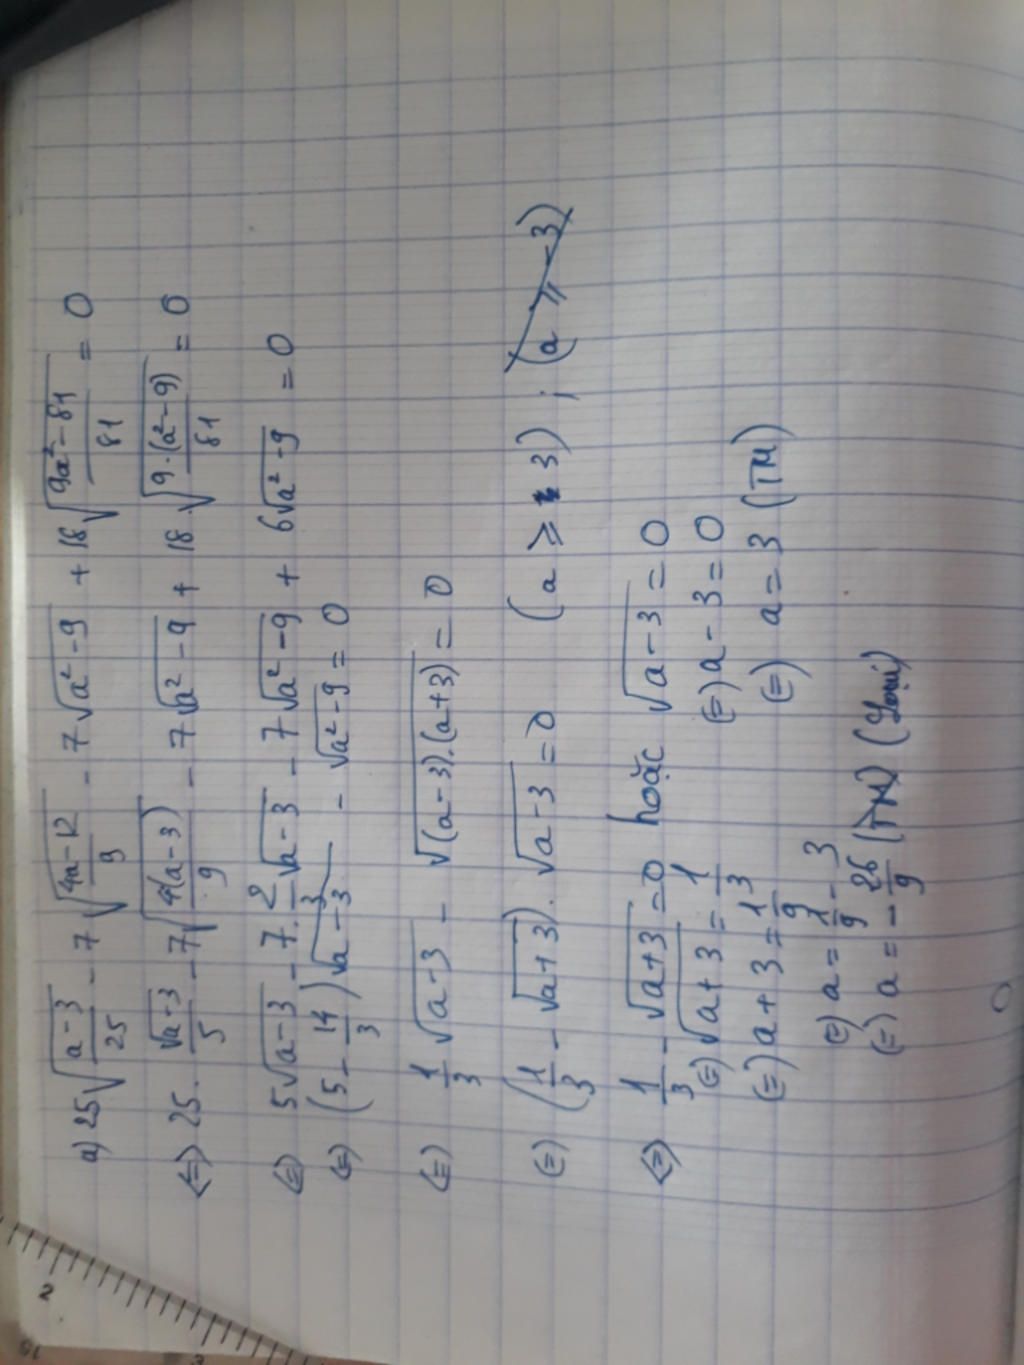 a) 25√((a-3)/25) - 7√((4a-12)/9) - 7√(a²-9) + 18√((9a²-81)/81) = 0
<=> 25.√(a-3)/5 - 7√(4(a-3)/9) - 7√(a²-9) + 18.√(9.(a²-9)/81) = 0
(=) 5√(a-3) - 7.2/3√(a-3) - 7√(a²-9) + 6√(a²-9) = 0
(=) (5 - 14/3)√(a-3) - √(a²-9) = 0
(=) 1/3√(a-3) - √((a-3).(a+3)) = 0
(=) (1/3 - √(a+3)).√(a-3) = 0 (a ⩾ 3) ; (a ⩾ -3)
(=) 1/3 - √(a+3) = 0 hoặc √(a-3) = 0
(=) √(a+3) = 1/3 (=) a - 3 = 0
(=) a + 3 = 1/9 (=) a = 3 (TM)
(=) a = 1/9 - 3
(=) a = -26/9 (TM) (Loại)